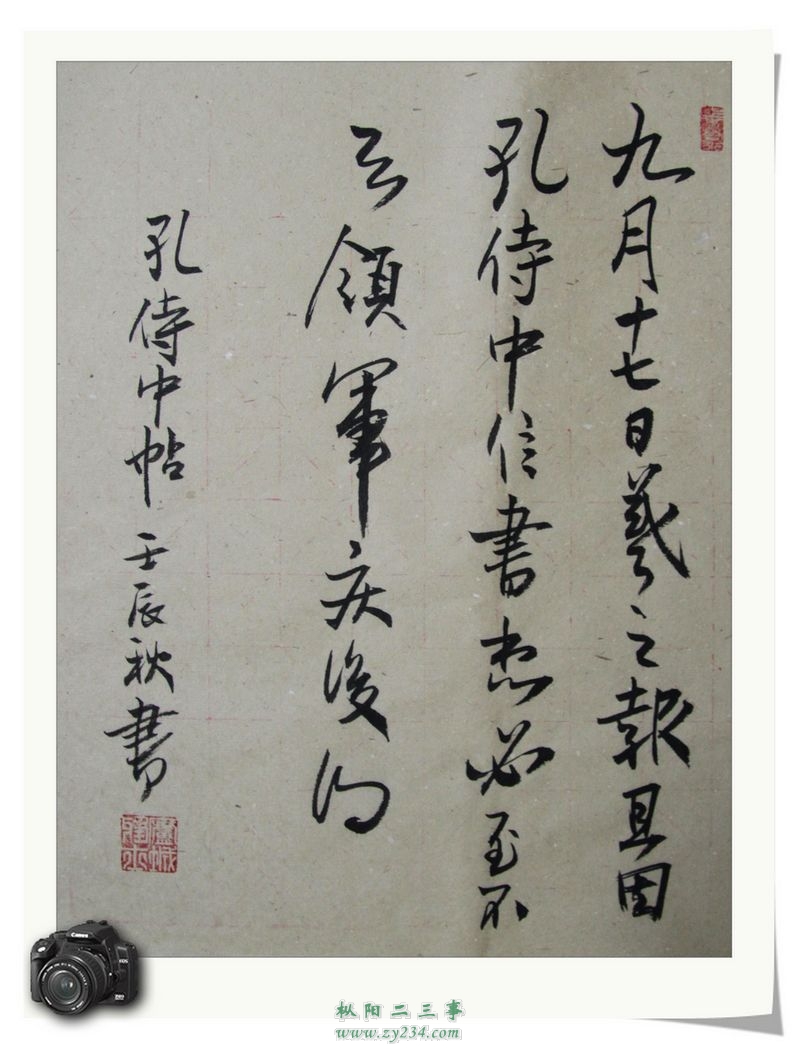 九月十七日羲之報且因
孔侍中信書想必至不
知領軍疾後問
孔侍中帖 壬辰秋書
Canon
EOS
枞阳二三事
www.zy234.com